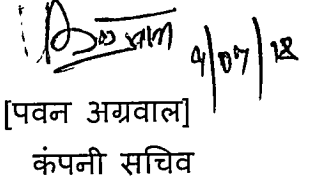 4/07/18
[पवन अग्रवाल]
कंपनी सचिव